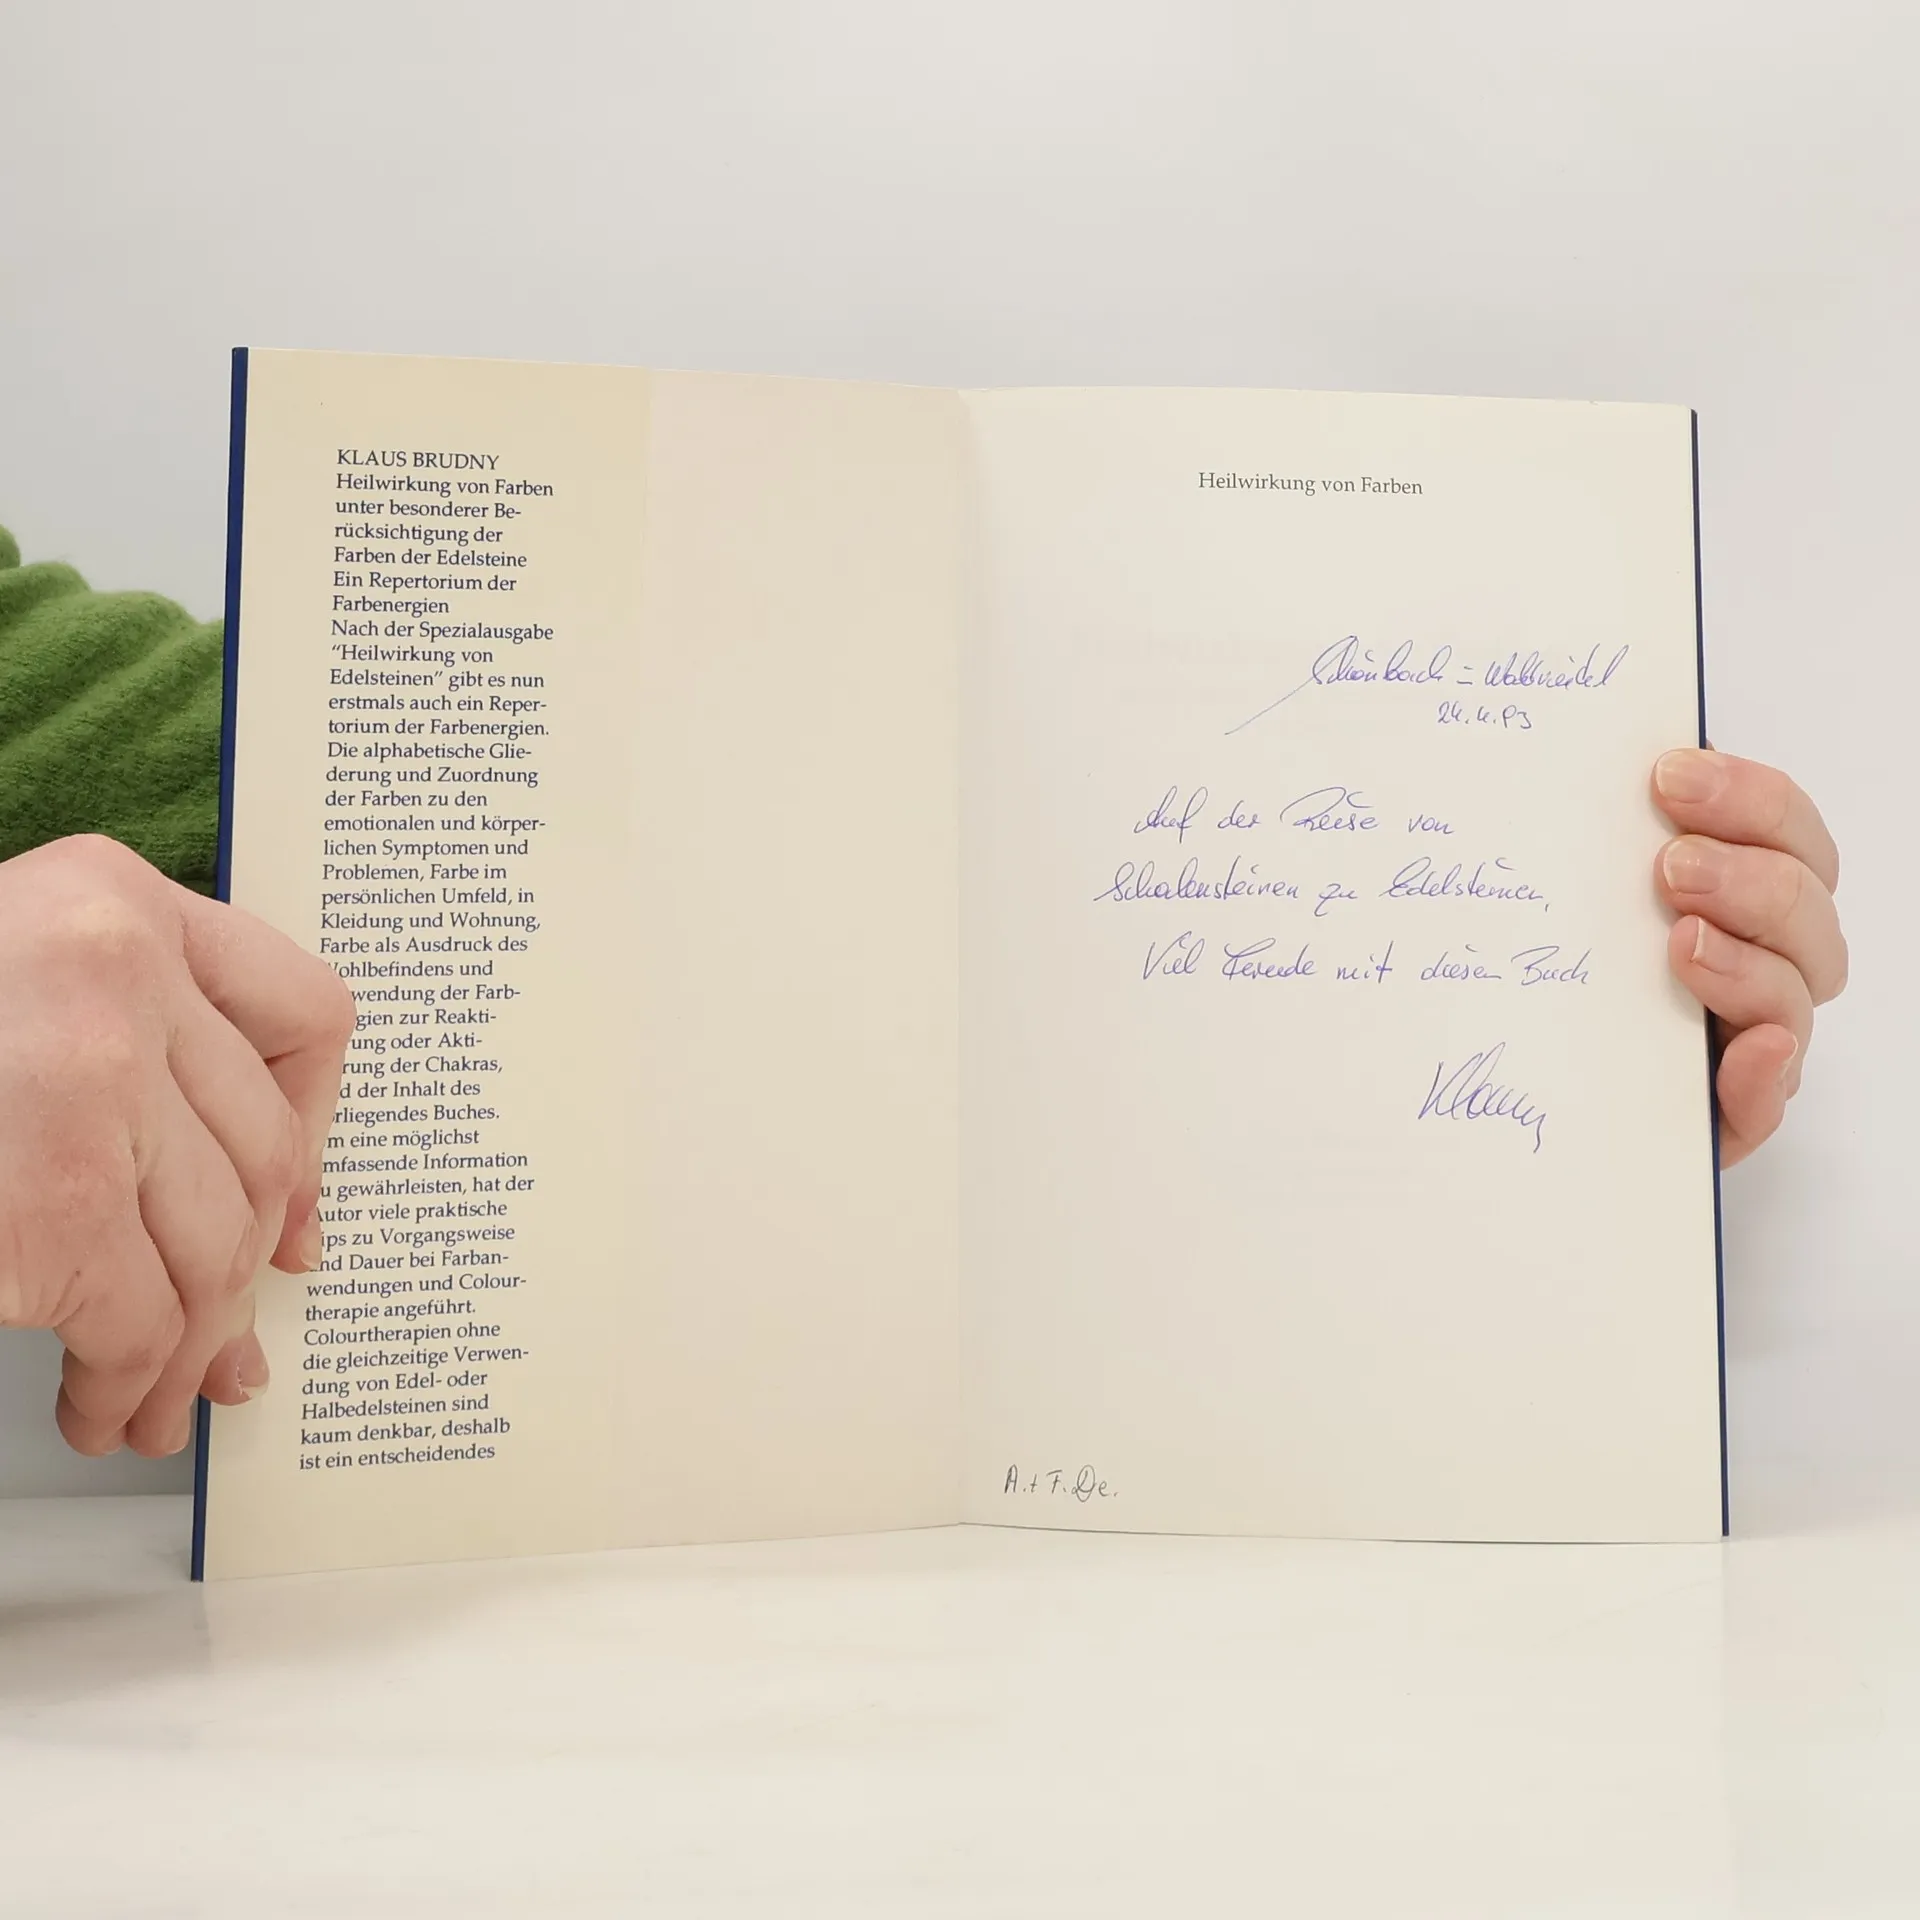 KLAUS BRUDNY
Heilwirkung von Farben
unter besonderer Be-
rücksichtigung der
Farben der Edelsteine
Ein Repertorium der
Farbenergien
Nach der Spezialausgabe
“Heilwirkung von
Edelsteinen” gibt es nun
erstmals auch ein Reper-
torium der Farbenergien.
Die alphabetische Glie-
derung und Zuordnung
der Farben zu den
emotionalen und körper-
lichen Symptomen und
Problemen, Farbe im
persönlichen Umfeld, in
Kleidung und Wohnung,
Farbe als Ausdruck des
ohlbefindens und
wendung der Farb-
gien zur Reakti-
ung oder Akti-
rung der Chakras,
d der Inhalt des
rliegendes Buches.
m eine möglichst
mfassende Information
u gewährleisten, hat der
Autor viele praktische
ips zu Vorgangsweise
nd Dauer bei Farban-
wendungen und Colour-
therapie angeführt.
Colourtherapien ohne
die gleichzeitige Verwen-
dung von Edel- oder
Halbedelsteinen sind
kaum denkbar, deshalb
ist ein entscheidendes
Heilwirkung von Farben
Schönbach -
24.4.93
Auf der Reise von
Schalensteinen zu Edelsteinen,
Viel Freude mit diesem Buch
Klaus
A. + F. De.